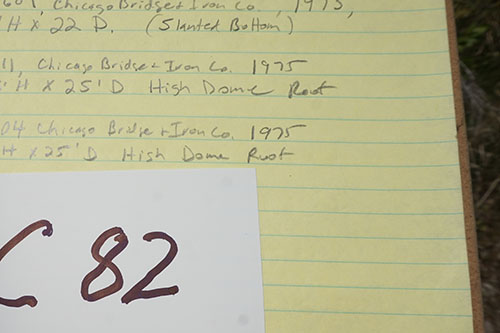 601, Chicago Bridge & Iron Co., 1975,
H X 22 D. (Slanted Bottom)
11, Chicago Bridge & Iron Co. 1975
' H X 25' D High Dome Roof
04 Chicago Bridge & Iron Co. 1975
H X 25' D High Dome Roof
C 82